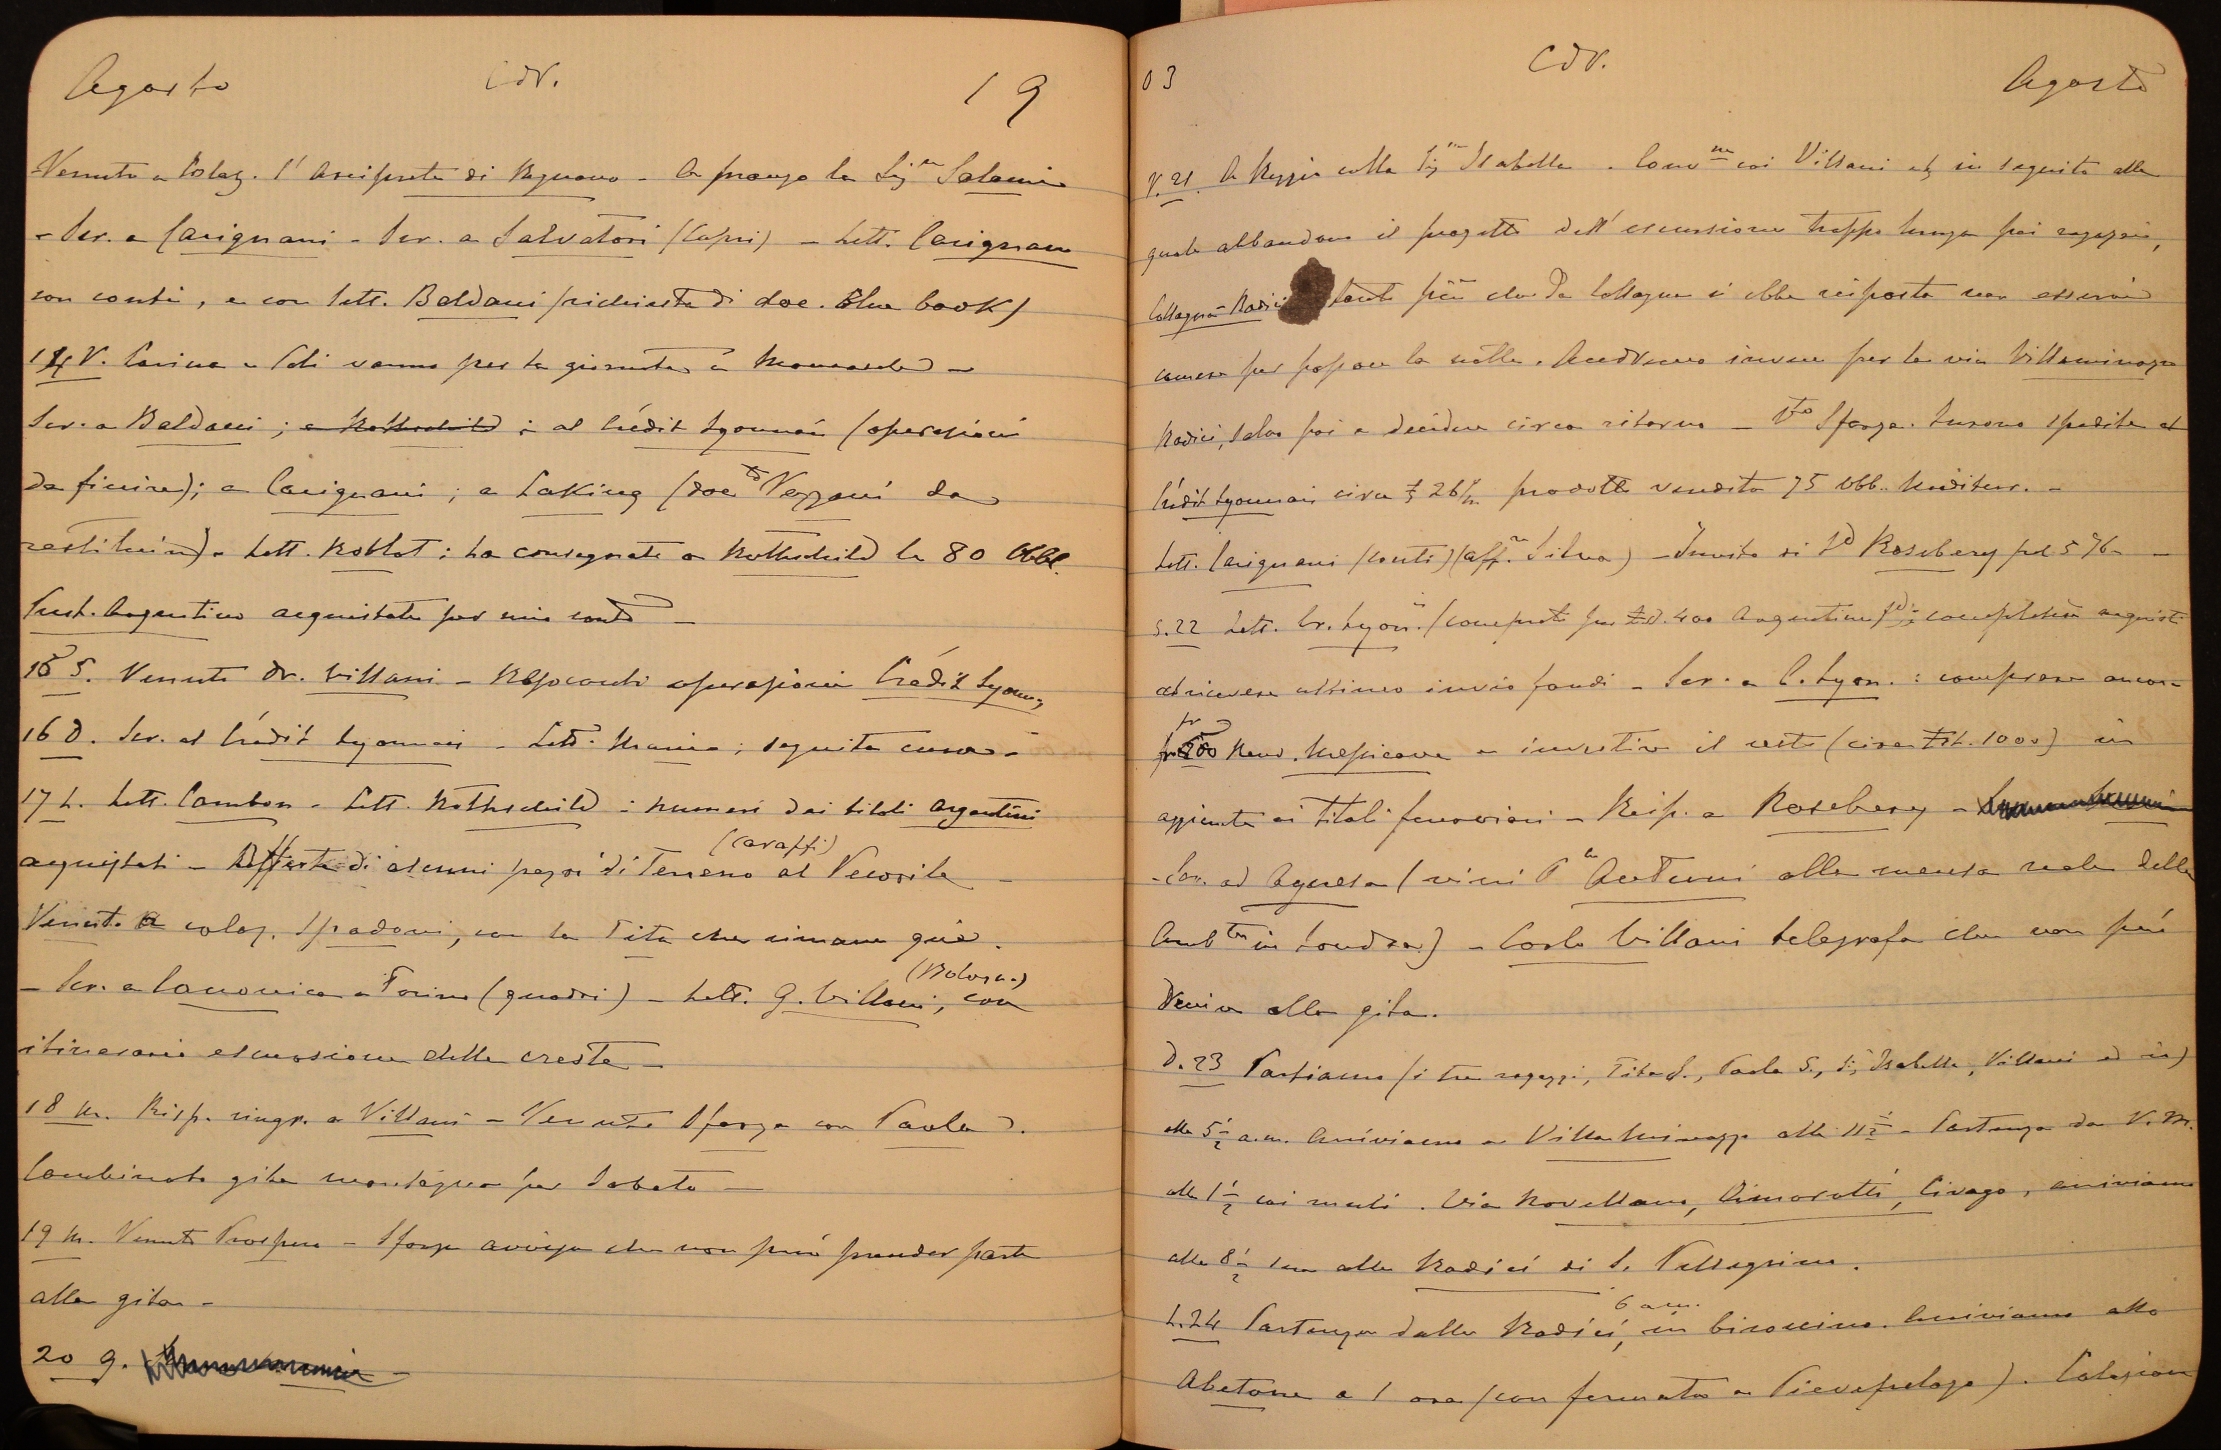 Agosto CdV. 19
Venuto a Colaz. l'Arciprete di Regnano - A pranzo la Sig.ra Salomè
- Scr. a Carignani - Scr. a Salvatori (Capri) - Lett. Carignani
con conti, e con lett. Baldani (richiesta di doc. Blue book)
14 V. Carina e Edi vanno per la giornata a
Scr. a Baldani; a Rothschild; al Crédit Lyonnais (operazioni
da finire); a Carignani; a Laking (doc.ti Vezzani da
restituire). Lett. Roblot: ha consegnato a Rothschild le 80 Obbl.
Argentine acquistate per mio conto -
15 S. Venuto Dr. Villani - Resoconto operazioni Crédit Lyonn.
16 D. Scr. al Crédit Lyonnais - Lett. ; seguita cura -
17 L. Lett. Cambon - Lett. Rothschild: numeri dei titoli argentini
acquistati - Offerta di alcuni pezzi di Terreno al Vecovile (Caraffi) -
Venuto a colaz. Spadoni, con la Tita che rimane quì.
- Scr. a Canonica a Torino (quadri) - Lett. G. Villani (Bologna), con
itinerario escursione delle creste -
18 M. Risp. ringr. a Villani - Venuto Sforza con Paola S.
Combinato gita montagna per Sabato -
19 M. Venuto Prospero - Sforza avvisa che non può prender parte
alla gita -
20 G. -
03 CdV. Agosto
V. 21. A Reggio colla Sig.na Isabella. Conv.ne coi Villani etc in seguito alla
quale abbandono il progetto dell'escursione troppo lunga pei ragazzi,
Collagna-Radici tanto più che da Collagna si ebbe risposta non esservi
camere per passare la notte. Andremo invece per la via Villaminozzo
Radici, salvo poi a decidere circa ritorno - V.to Sforza. Furono spedite al
Crédit Lyonnais circa £ 26/m prodotto vendita 75 Obb. Meridion. -
Lett. Carignani (conti) (aff.re Silva) - Invito di Ld Rosebery pel 5 7bre -
S. 22 Lett. Cr. Lyon. (comprate per £st. 400 Argentine); completerà acquisti
al ricevere ultimo invio fondi - Scr. a C. Lyon.: comprare ancora
fr 500 Rend. Messicana e investire il resto (circa £st. 1000) in
aggiunta ai titoli ferroviari - Risp. a Rosebery -
- Scr. ad Agnesa (vini Antuni alla mensa reale della
Amb.ta in Londra) - Carlo Villani telegrafa che non può
venire alla gita.
D. 23 Partiamo (i tre ragazzi, Tita S., Paola S., Sig. Isabella, Villani ed io)
alle 5 1/2 a.m. Arriviamo a Villaminozzo alle 11 1/2 - Partenza da V.M.
alle 1 1/2 coi muli. Via Novellano, Cimorotti, Civago, arriviamo
alle 8 1/2 sera alle Radici di S. Pellegrino.
L. 24 Partenza dalle Radici, 6 a.m. in biroccino. Arriviamo allo
Abetone a 1 ora (con fermata a Pievepelago). Colazione